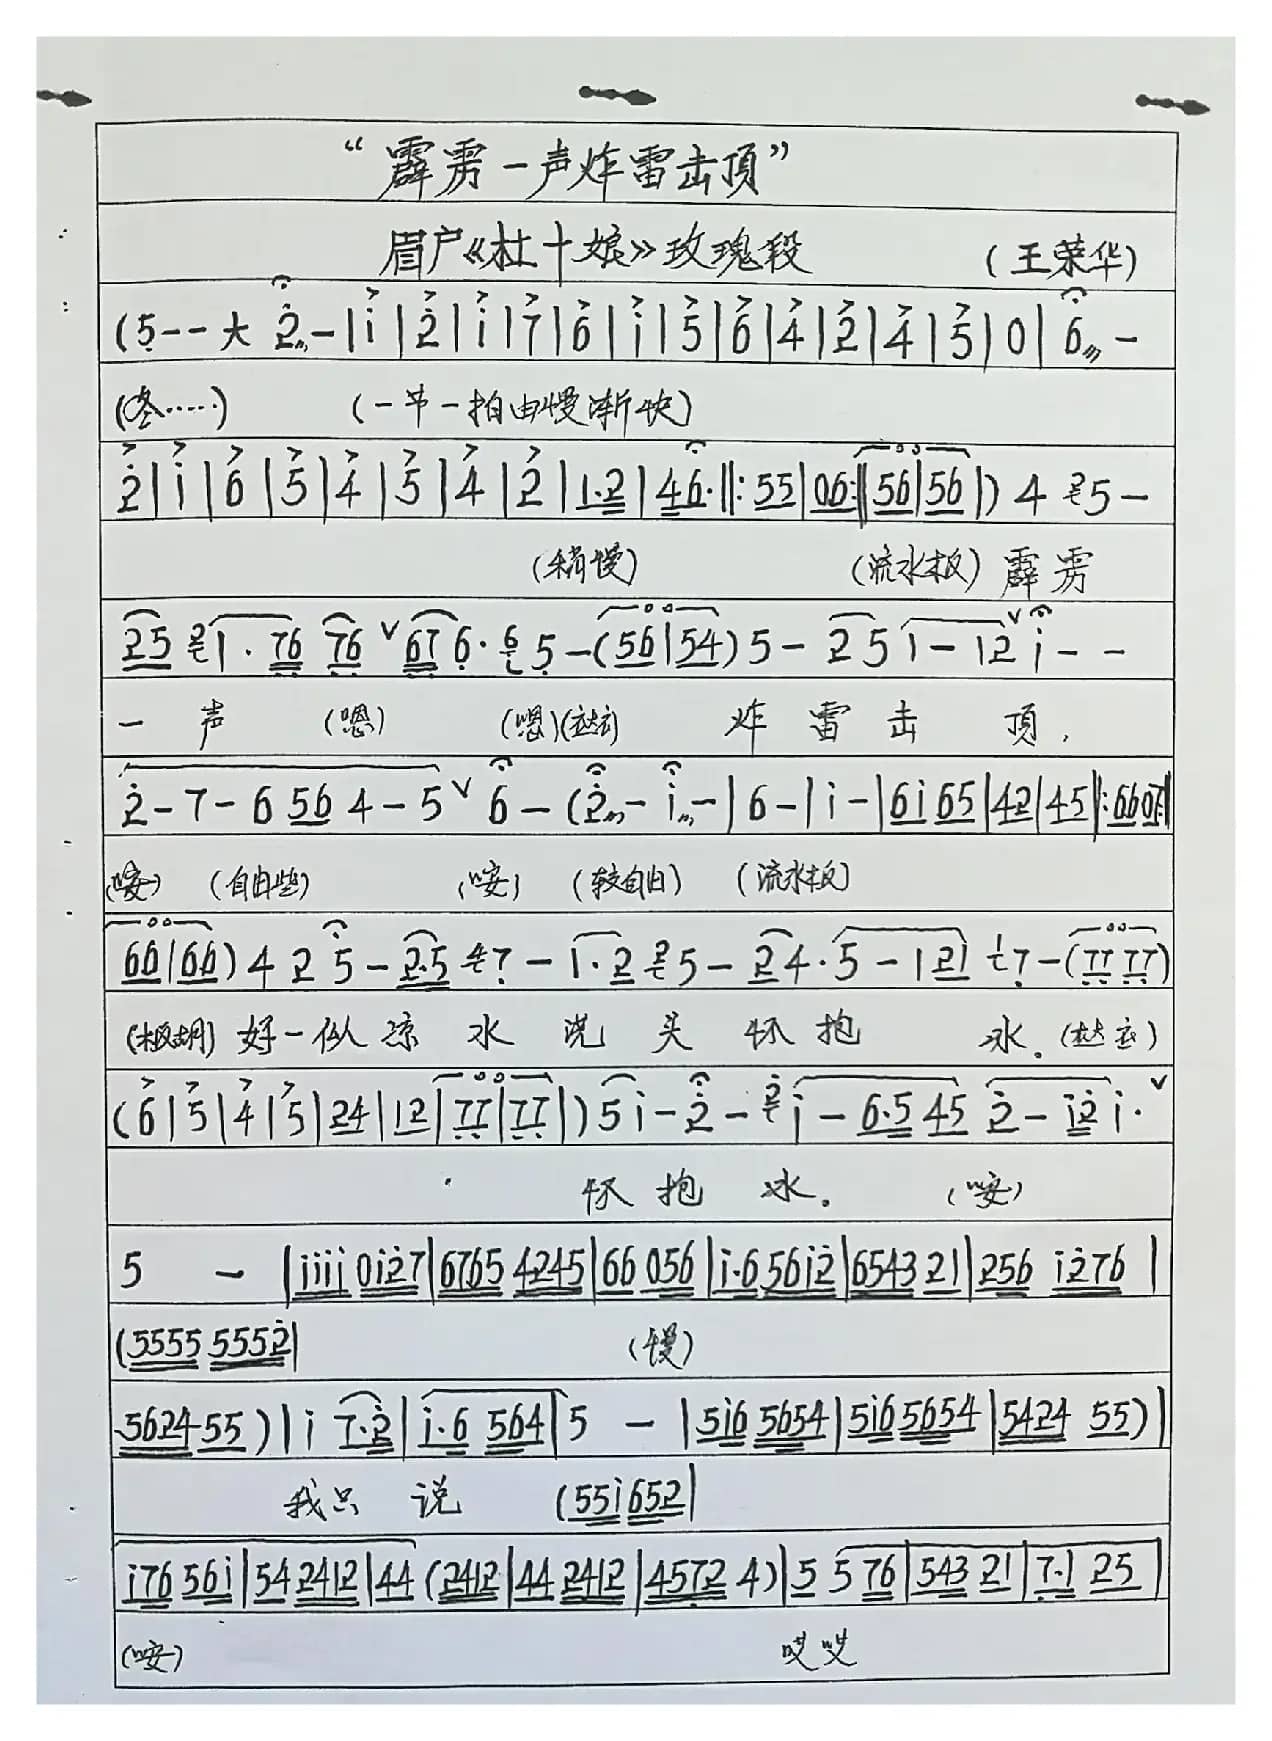 “霹雳一声炸雷击顶”
眉户《杜十娘》玫瑰段 (王荣华)
(5--大 2̇-|i̇|2̇|i̇|7|6|i̇|5|6|4|2|4|5|0|6 -
(冬……) (一节一拍由慢渐快)
2̇|i̇|6|5|4|5|4|2|1·2|46·‖:55|06:‖56|56|) 4 5-
(稍慢) (流水板) 霹雳
25 1·76 76 ∨ 67 6· 5-(56|54) 5- 25 1-12 ∨ i̇--
一声 (嗯) (嗯) 炸雷击顶,
2̇-7-6 56 4-5 ∨ 6-(2̇- i̇-|6-|i̇-|6i̇65|42|45|:660
(唉) (自由些) (唉) (较自由) (流水板)
66|66) 4 2 5- 2·5 7- 1·2 5- 24·5-121 7-(77 77)
(板胡) 好一似凉水浇头怀抱冰.
(6|5|4|5|24|12|77|77|) 5 i̇-2̇- i̇-6·5 45 2̇-i̇2̇ i̇· ∨
怀抱冰. (唉)
5 -|i̇i̇i̇i̇ 0i̇2̇7|6765 4245|66 056|i̇·6 56i̇2̇|6543 21|256 i̇2̇76|
(5555 5552̇| (慢)
5624 55)|i̇ 7·2̇|i̇·6 564|5 -|5i̇6 5654|5i̇6 5654|5424 55)|
我只说 (55i̇ 652|
i̇76 56i̇|54 2412|44 (2412|44 2412|4572 4)|5 5 76|543 21|7·1 25|
(唉) 哎哎